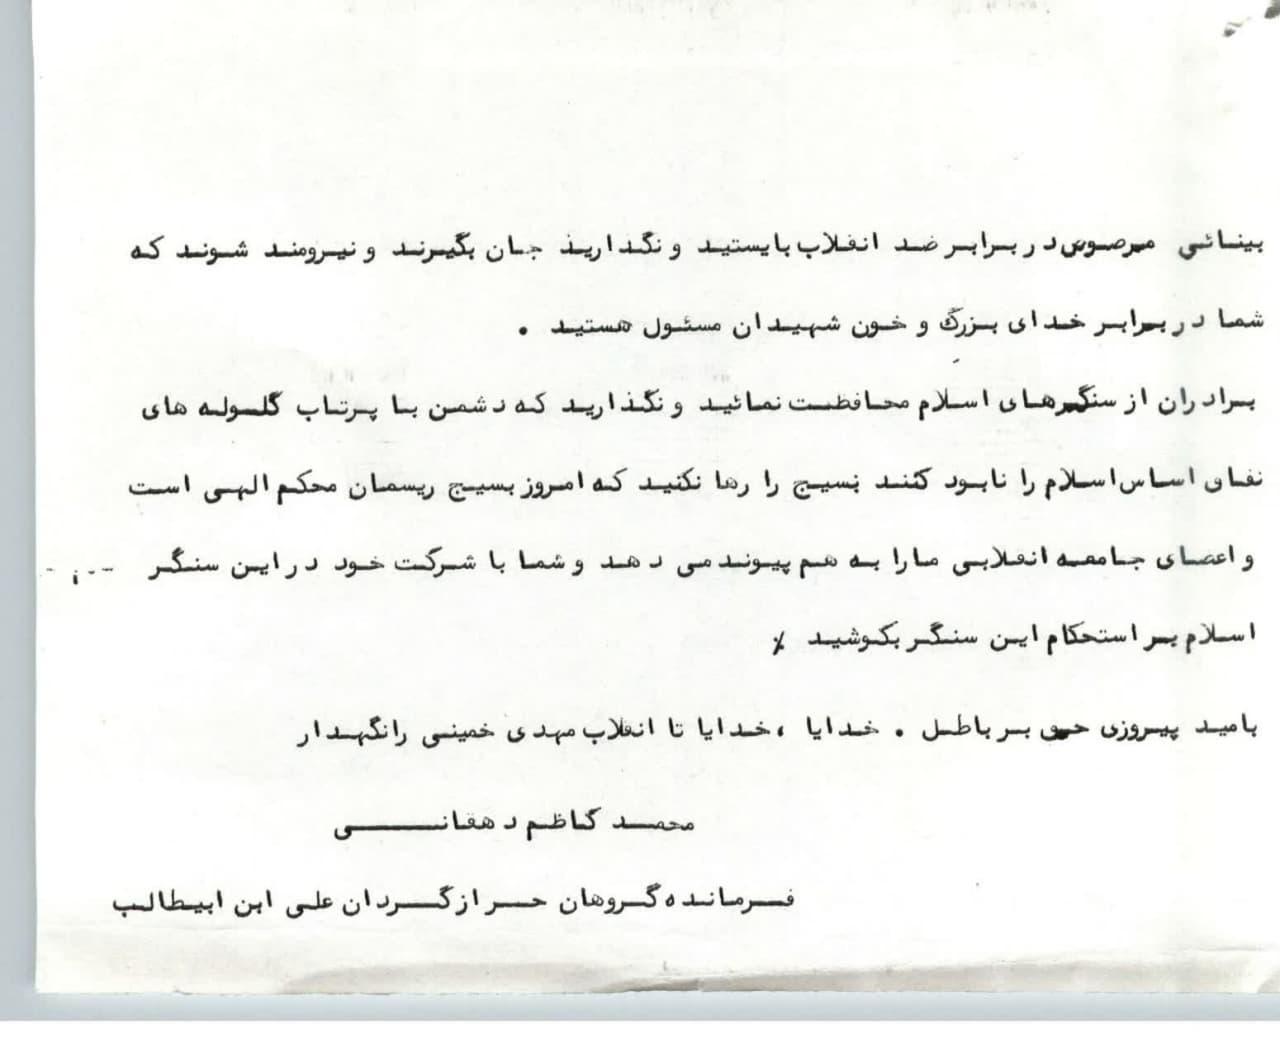 بینائی مرصوص در برابر ضد انقلاب بایستید و نگذارید جان بگیرند و نیرومند شوند که
شما در برابر خدای بزرگ و خون شهیدان مسئول هستید .
برادران از سنگرهای اسلام محافظت نمائید و نگذارید که دشمن با پرتاب گلوله های
نفاق اساس اسلام را نابود کنند بسیج را رها نکنید که امروز بسیج ریسمان محکم الهی است
و اعضای جامعه انقلابی ما را به هم پیوند می دهد و شما با شرکت خود در این سنگر
اسلام بر استحکام این سنگر بکوشید ٪
بامید پیروزی حق بر باطل . خدایا ، خدایا تا انقلاب مهدی خمینی را نگهدار
محمد کاظم دهقانی
فرمانده گروهان حر از گردان علی ابن ابیطالب